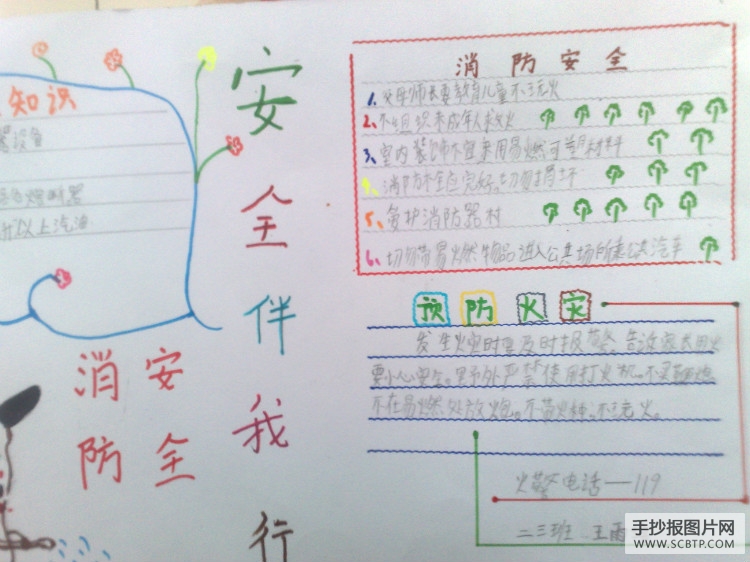 知识
器设备
以上汽油
安全伴我行
消防安全
1、父母师长要教育儿童不玩火
2、不组织未成年人救火
3、室内装饰不宜采用易燃可燃材料
4、消防栓应完好,切勿损坏
5、爱护消防器材
6、切勿带易燃物品进入公共场所乘公共汽车
预防火灾
发生火灾时要及时报警。告诉家长用火
要小心安全。野外严禁使用打火机。不买
不在易燃处放炮。不带火种。不玩火。
火警电话——119
二三班 王雨
消安
防全
手抄报图片网
WWW.SCBTP.COM